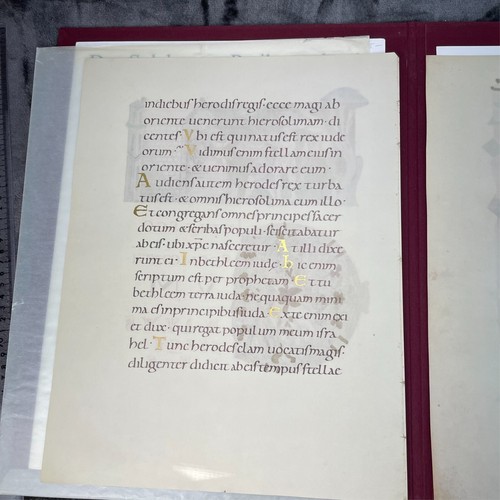 indiebus herodis regis · ecce magi ab
oriente uenerunt hierosolimam · di
centes · Vbi est qui natus est rex iude
orum · Vidimus enim stellam eius in
oriente · & uenimus adorare eum ·
Audiens autem herodes rex turba
tus est · & omnis hierosolima cum illo ·
Et congregans omnes principes sacer
dotum & scribas populi · sciscitabatur
ab eis · ubi xpe nasceretur · At illi dixe
runt ei · In bethleem iude · hic enim
scriptum est per prophetam · Et tu
bethleem terra iuda · nequaquam mini
ma es in principibus iuda · ex te enim exi
et dux · qui regat populum meum isra
hel · Tunc herodes clam uocatis magis ·
diligenter didicit ab eis tempus stellae